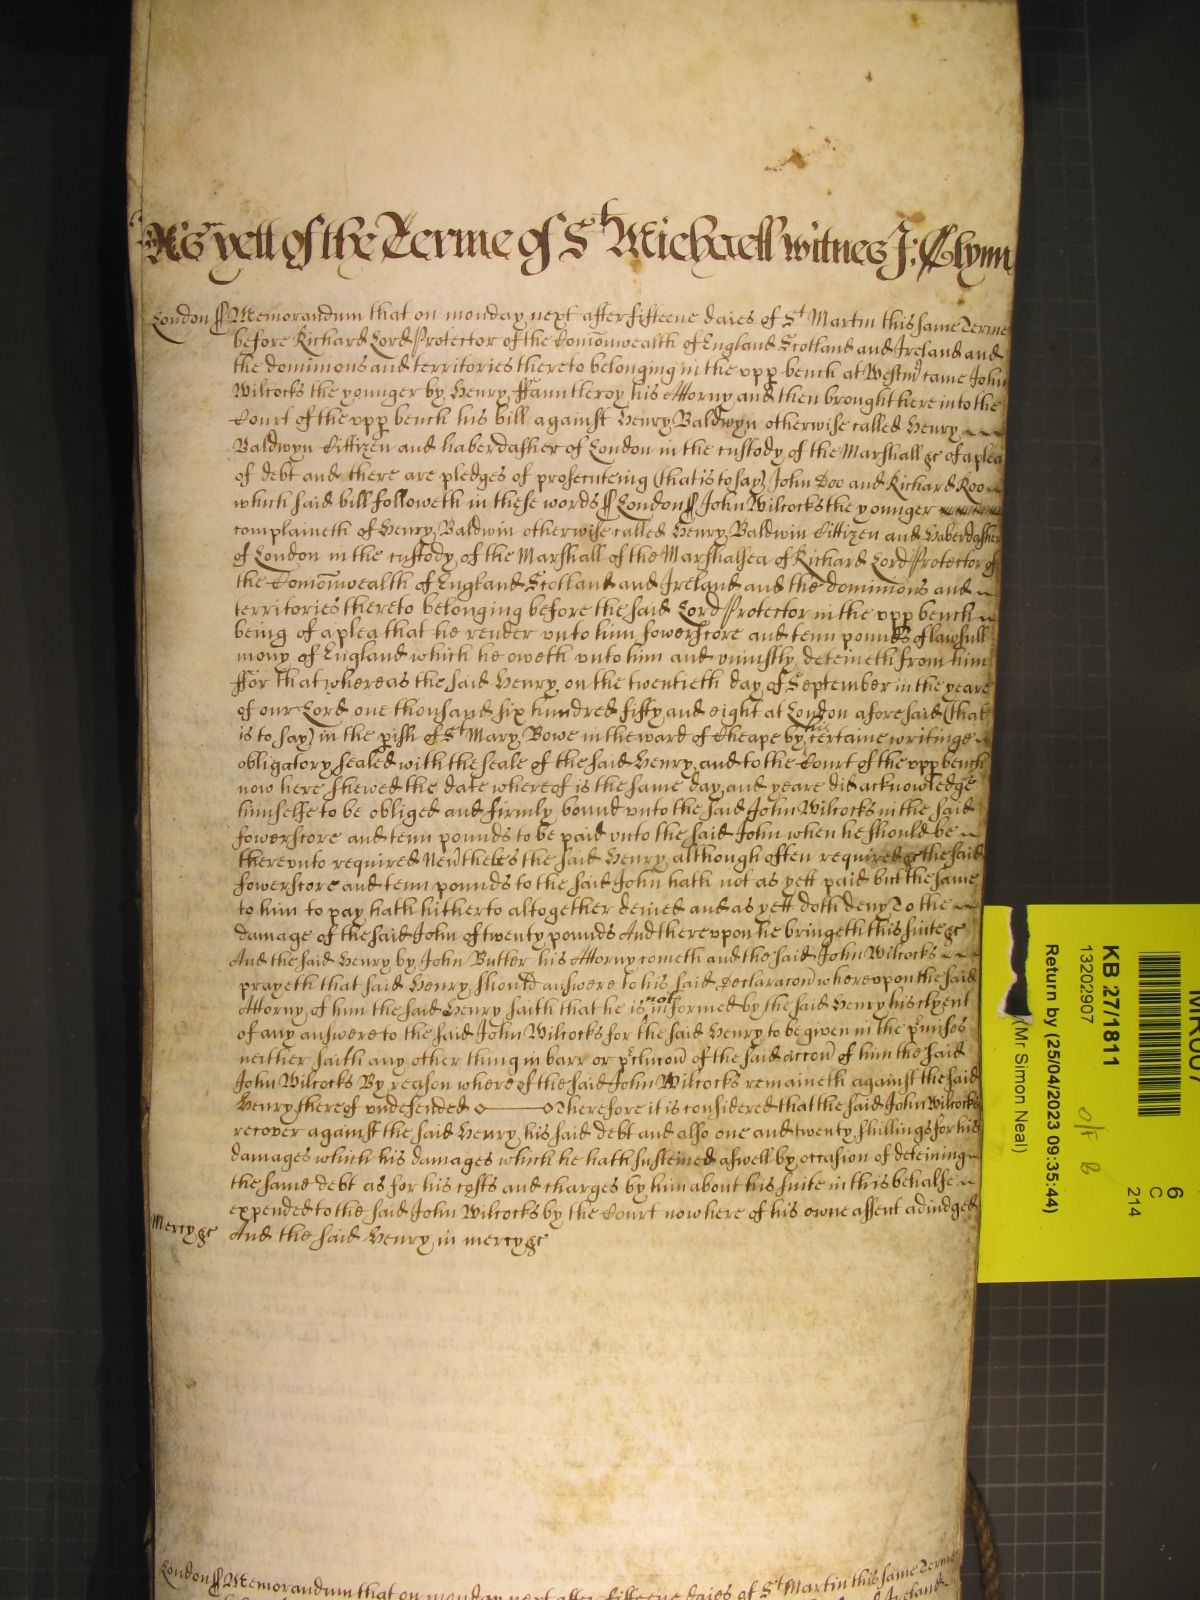 As yett of the Terme of St Michaell witnes J: Glynn
London ss Memorandum that on monday next after fifteene daies of St Martin this same Terme
before Richard Lord Protector of the Com̃onwealth of England Scotland and Ireland and
the dominions and territories thereto belonging in the upp bench at Westmr came John
Wilcocks the younger by Henry ffauntleroy his Attorny and then brought here into the
Court of the upp bench his bill against Henry Baldwyn otherwise called Henry
Baldwyn Cittizen and haberdasher of London in the custody of the Marshall &c of a plea
of debt and there are pledges of prosecuteing (that is to say) John Doo and Richard Roo
which said bill followeth in these words ss London ss John Wilcocks the younger
complaineth of Henry Baldwin otherwise called Henry Baldwin Cittizen and Haberdasher
of London in the custody of the Marshall of the Marshalsea of Richard Lord Protector of
the Com̃onwealth of England Scotland and Ireland and the dominions and
territories thereto belonging before the said Lord Protector in the vpp bench
being of a plea that he render vnto him fowerscore and tenn pounds of lawfull
mony of England which he oweth vnto him and vniustly deteineth from him
ffor that whereas the said Henry on the twentieth day of September in the yeare
of our Lord one thousand six hundred fifty and eight at London aforesaid (that
is to say) in the pish of St Mary Bowe in the ward of Cheape by his certaine writinge
obligatory sealed with the seale of the said Henry and to the Court of the vpp bench
now here shewed the date whereof is the same day and yeare did acknowledge
himselfe to be obliged and firmly bound vnto the said John Wilcocks in the said
fowerscore and tenn pounds to be paid vnto the said John when he should be
therevnto required Nev̄theles the said Henry although often required &c the said
fowerscore and tenn pounds to the said John hath not as yett paid but the same
to him to pay hath hitherto altogether denied and as yett doth deny To the
damage of the said John of twenty pounds And therevpon he bringeth this suite &c
And the said Henry by John Butter his Attorny cometh and the said John Wilcocks
prayeth that said Henry should answere to his said Declaracon̄ wherevpon the said
Attorny of him the said Henry saith that he is not informed by the said Henry his clyent
of any answere to the said John Wilcocks for the said Henry to be given in the p̄misses
neither saith any other thing in barr or p̄clucon̄ of the said accon̄ of him the said
John Wilcocks By reason whereof the said John Wilcocks remaineth against the said
Henry thereof vndefended Therefore it is considered that the said John Wilcocks
recover against the said Henry his said debt and also one and twenty shillings for his
damages which his damages which he hath susteined aswell by occasion of deteining
the same debt as for his costs and charges by him about his suite in this behalfe
expended to the said John Wilcocks by the Court now here of his owne assent adiudged
Mercy &c And the said Henry in mercy &c
London ss Memorandum that on monday next after fifteene daies of St Martin this same Terme
KB 27/1811
13202907
Return by (25/04/2023 09:35:44)
(Mr Simon Neal)
6
C
214